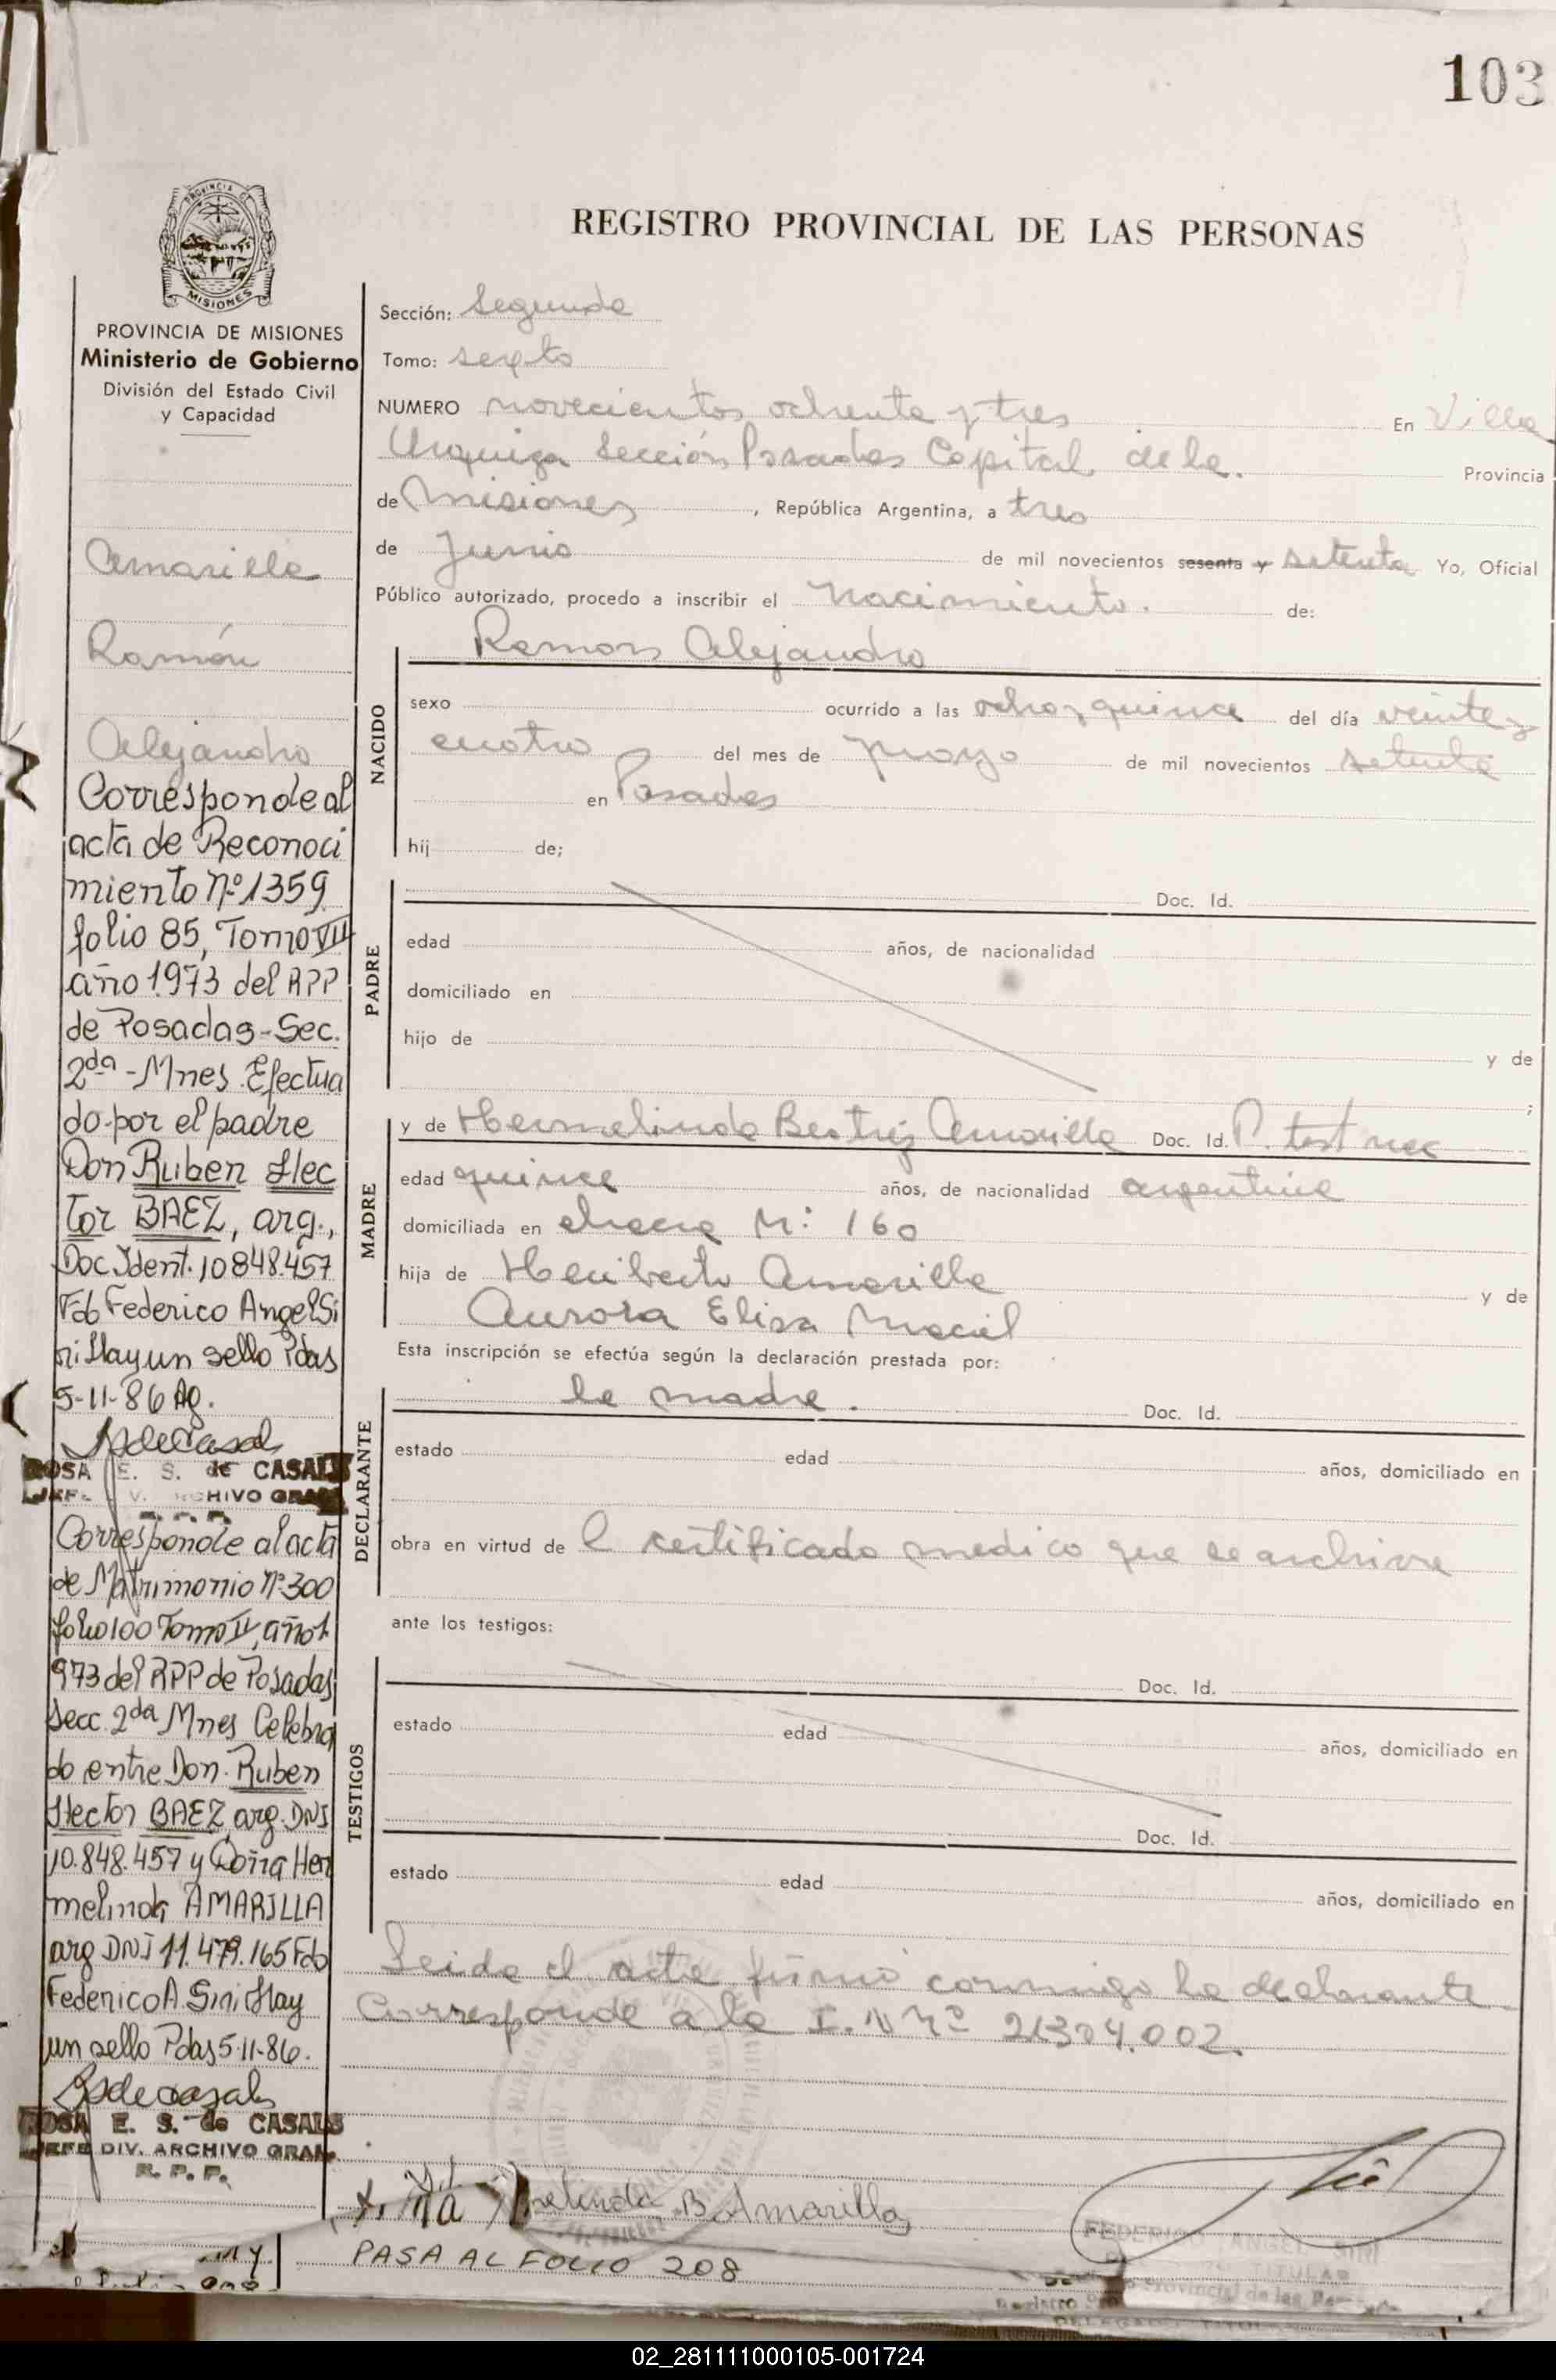 103
PROVINCIA DE MISIONES
Ministerio de Gobierno
División del Estado Civil
y Capacidad
Amarilla
Ramón
Alejandro
Corresponde al
acta de Reconoci
miento Nº 1359
folio 85, Tomo VII
año 1973 del RPP
de Posadas-Sec.
2da-Mnes. Efectua
do por el padre
Don Ruben Hec
tor BAEZ, arg.,
Doc Ident. 10848.457
Fdo Federico Angel Si
ri Hay un sello Pdas
5-11-86 Ag.
ROSA E. S. de CASALS
CHIVO GRAL
R. P. P.
Corresponde al acta
de Matrimonio Nº 300
folio 100 Tomo II, año 1
973 del RPP de Posadas
Secc 2da Mnes Celebra
do entre Don. Ruben
Hector BAEZ arg. DNI
10.848.457 y Doña Her
melinda AMARILLA
arg DNI 11.479.165 Fdo
Federico A. Siri Hay
un sello Pdas 5-11-86.
ROSA E. S. de CASALS
JEFE DIV. ARCHIVO GRAL.
R. P. P.
REGISTRO PROVINCIAL DE LAS PERSONAS
Sección: Segunda
Tomo: sexto
NUMERO novecientos ochenta y tres En Villa
Urquiza Sección Posadas Capital de la. Provincia
de Misiones, República Argentina, a tres
de Junio de mil novecientos sesenta y setenta Yo, Oficial
Público autorizado, procedo a inscribir el Nacimiento. de:
NACIDO
Ramon Alejandro
sexo ocurrido a las ocho y quince del día veinte y
cuatro del mes de mayo de mil novecientos setenta
en Posadas
hij de;
PADRE
Doc. Id.
edad años, de nacionalidad
domiciliado en
hijo de y de
;
MADRE
y de Hermelinda Beatriz Amarilla Doc. Id. P. test nac
edad quince años, de nacionalidad argentina
domiciliada en chacra Nº 160
hija de Heriberto Amarilla y de
Aurora Elisa Maciel
Esta inscripción se efectúa según la declaración prestada por:
DECLARANTE
la madre. Doc. Id.
estado edad años, domiciliado en
obra en virtud de l certificado medico que se archiva
ante los testigos:
TESTIGOS
Doc. Id.
estado edad años, domiciliado en
Doc. Id.
estado edad años, domiciliado en
Leida el acta firmó conmigo la declarante
Corresponde a la I. N Nº 21304.002.
melinda B. Amarilla
PASA AL FOLIO 208
FEDERICO ANGEL SIRI
TITULAR
Provincial de las Per
02_281111000105-001724